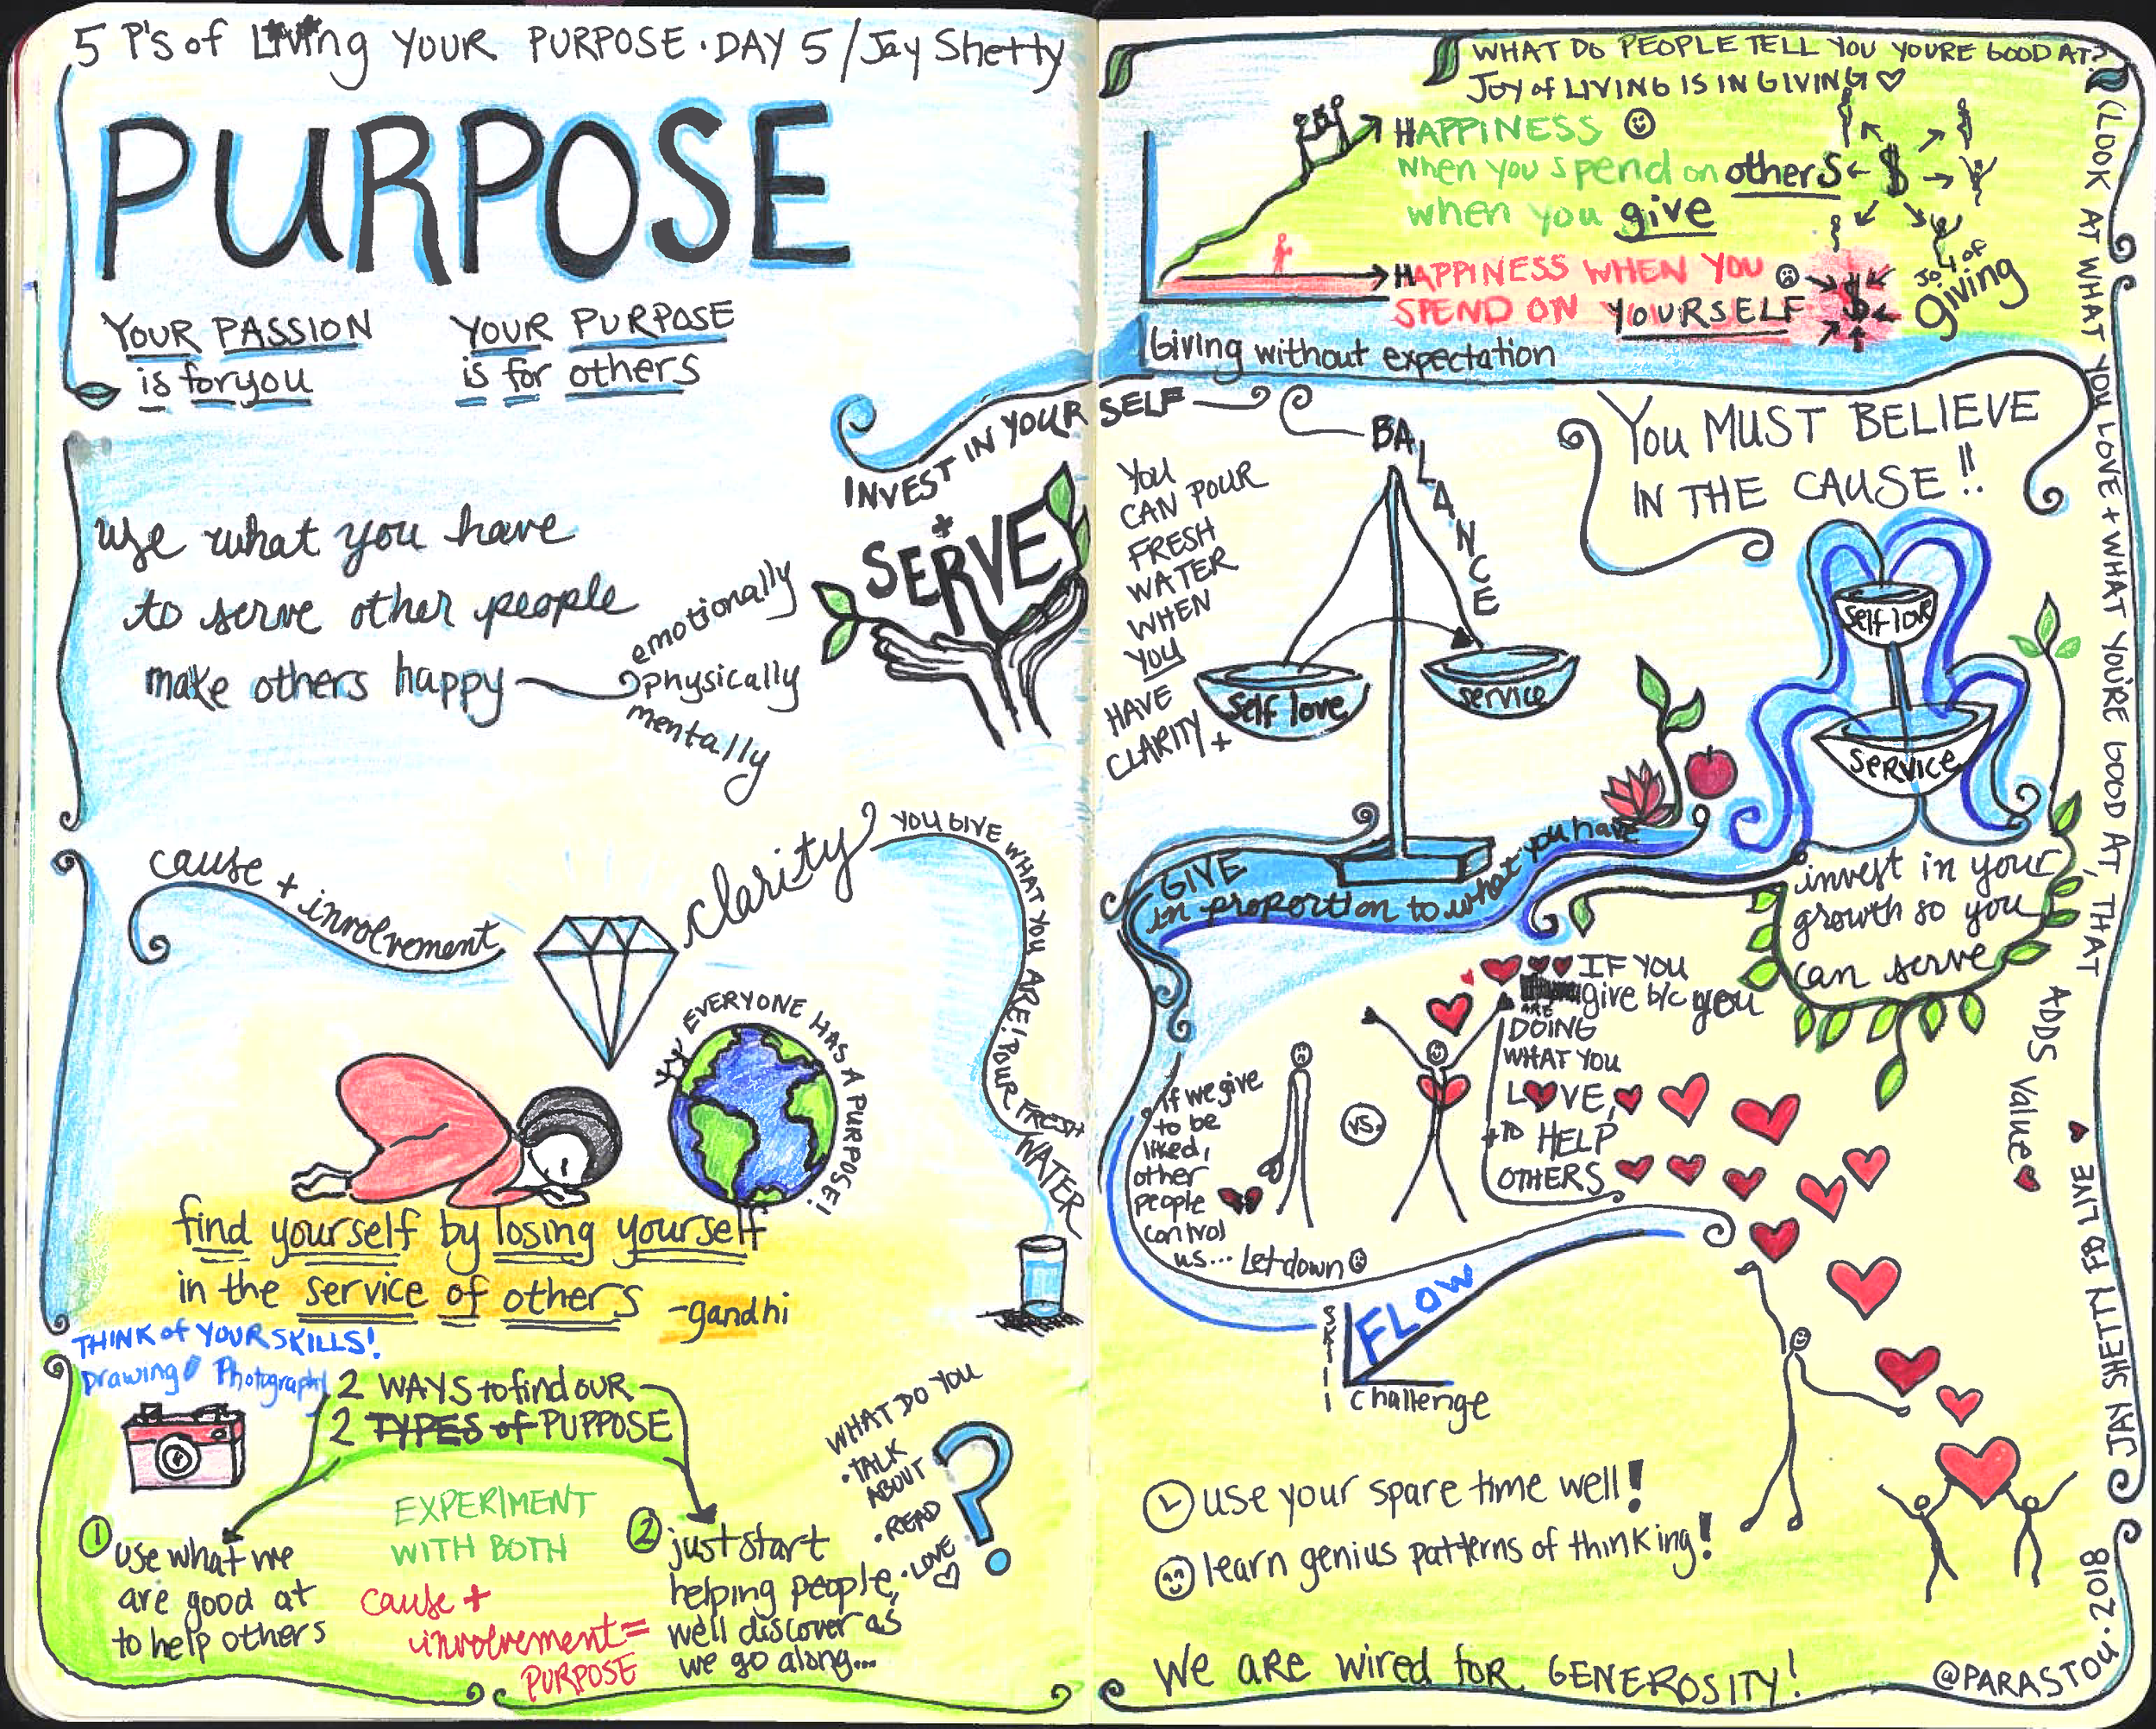 5 P's of Living YOUR PURPOSE • DAY 5 / Jay Shetty
PURPOSE
YOUR PASSION
is for you
YOUR PURPOSE
is for others
use what you have
to serve other people
make others happy
emotionally
physically
mentally
INVEST IN YOUR SELF
+
SERVE
cause + involvement
clarity
YOU GIVE WHAT YOU ARE! POUR FRESH WATER
EVERYONE HAS A PURPOSE!
find yourself by losing yourself
in the service of others -gandhi
THINK of YOUR SKILLS!
Drawing Photography
2 WAYS to find OUR
2 TYPES of PURPOSE
1 use what we
are good at
to help others
EXPERIMENT
WITH BOTH
cause +
involvement =
PURPOSE
2 just start
helping people,
we'll discover as
we go along...
WHAT DO YOU
• TALK
ABOUT
• READ
• LOVE
?
WHAT DO PEOPLE TELL YOU YOURE GOOD AT?
JOY of LIVING IS IN GIVING
HAPPINESS
when you spend on others
when you give
$
HAPPINESS WHEN YOU
SPEND ON YOURSELF
$
JOY of
giving
Giving without expectation
(LOOK AT WHAT YOU LOVE + WHAT YOU'RE GOOD AT, THAT ADDS value
BALANCE
YOU
CAN POUR
FRESH
WATER
WHEN
YOU
HAVE
CLARITY +
Self love
service
YOU MUST BELIEVE
IN THE CAUSE!!
Self love
SERVICE
GIVE
in proportion to what you have
invest in your
growth so you
can serve
if we give
to be
liked,
other
people
control
us... Let down
vs.
IF YOU
give b/c you
ARE
DOING
WHAT YOU
LOVE,
+ TO HELP
OTHERS
SKILL
FLOW
challenge
use your spare time well!
learn genius patterns of thinking!
We ARE wired for GENEROSITY!
JAY SHETTY FB LIVE
@PARASTOU • 2018